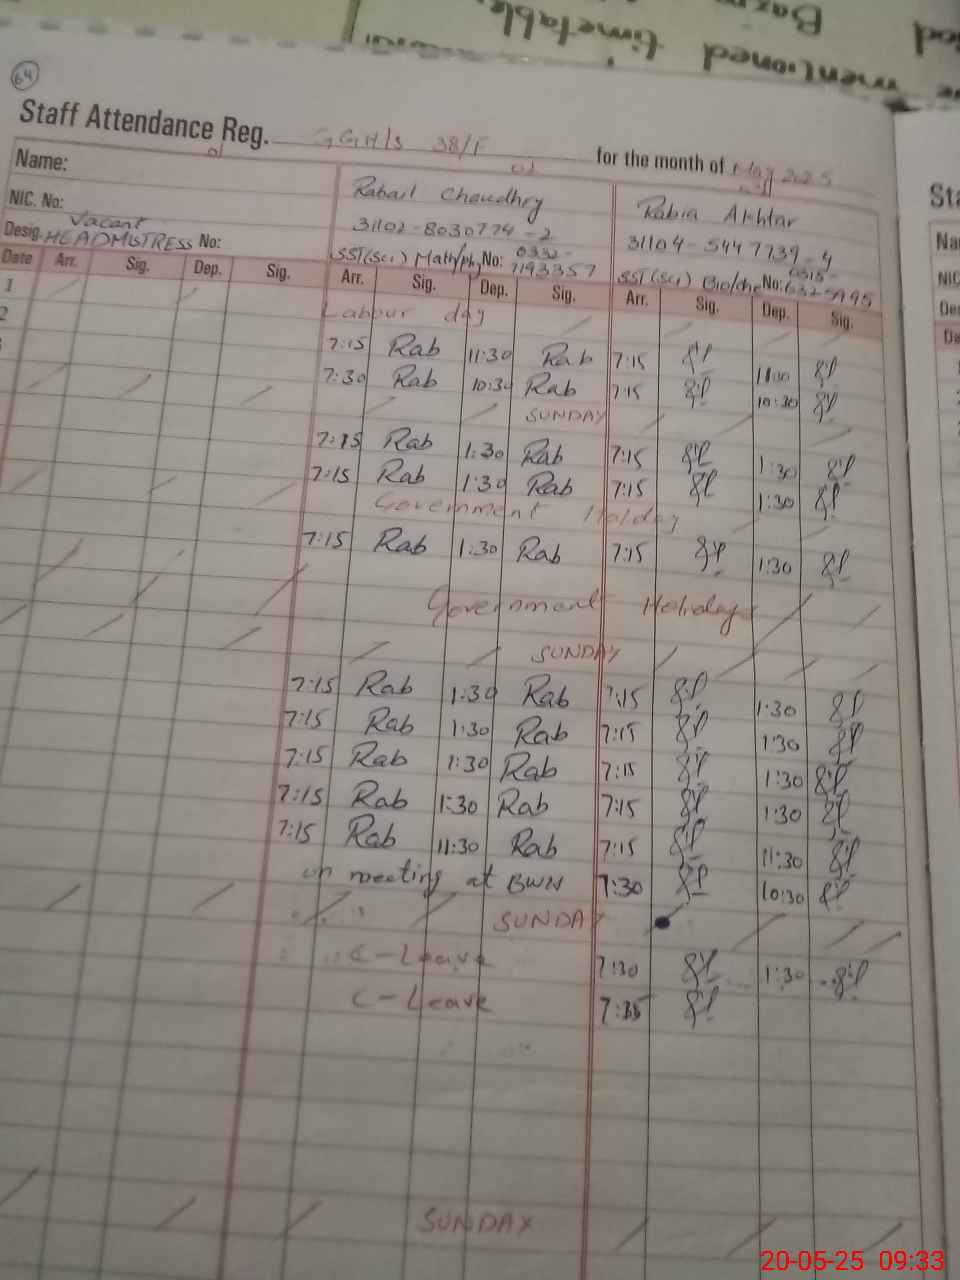 mentioned timetable.
64
Staff Attendance Reg. GGH/S 38/F for the month of May 2025
01 02
Name: Rabail Chaudhry Rabia Akhtar
NIC. No: 31102-8030774-2 31104-5447739-4
Vacant
Desig. HEADMISTRESS No: SST(Sci) Math/phy No: 0332-7193357 SST(Sci) Bio/che No: 0315-6325995
Date Arr. Sig. Dep. Sig. Arr. Sig. Dep. Sig. Arr. Sig. Dep. Sig.
1 Labour day
2 7:15 Rab 11:30 Rab 7:15 11:00
7:30 Rab 10:30 Rab 7:15 10:30
SUNDAY
7:15 Rab 1:30 Rab 7:15 1:30
7:15 Rab 1:30 Rab 7:15 1:30
Government Holiday
7:15 Rab 1:30 Rab 7:15 1:30
Government Holiday
SUNDAY
7:15 Rab 1:30 Rab 7:15 1:30
7:15 Rab 1:30 Rab 7:15 1:30
7:15 Rab 1:30 Rab 7:15 1:30
7:15 Rab 1:30 Rab 7:15 1:30
7:15 Rab 11:30 Rab 7:15 11:30
on meeting at BWN 7:30 10:30
SUNDAY
C-Leave 7:30 1:30
C-Leave 7:35
SUNDAY
20-05-25 09:33